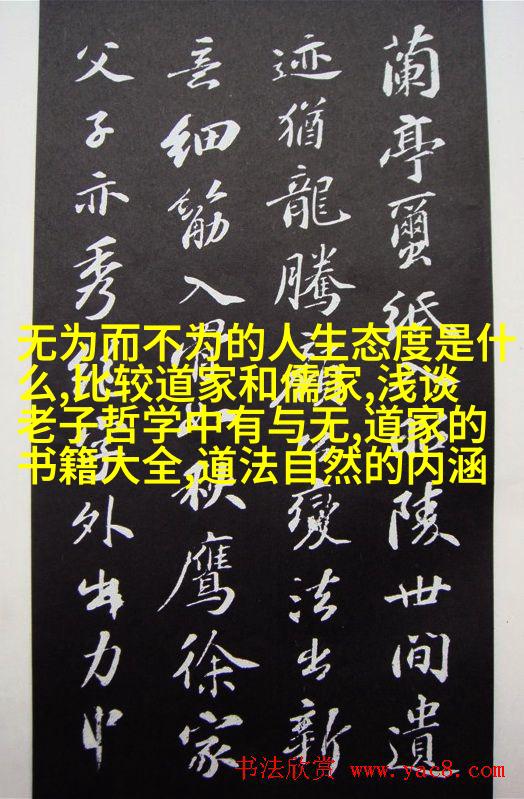 蘭亭蠒紙入昭陵世間遺
迹猶龍騰顏公變法出新
意細筋入骨如秋鷹徐家
父子亦秀絕字外出力中
无为而不为的人生态度是什
么,比较道家和儒家,浅谈
老子哲学中有与无,道家的
书籍大全,道法自然的内涵
书法欣赏 www.yac8.com